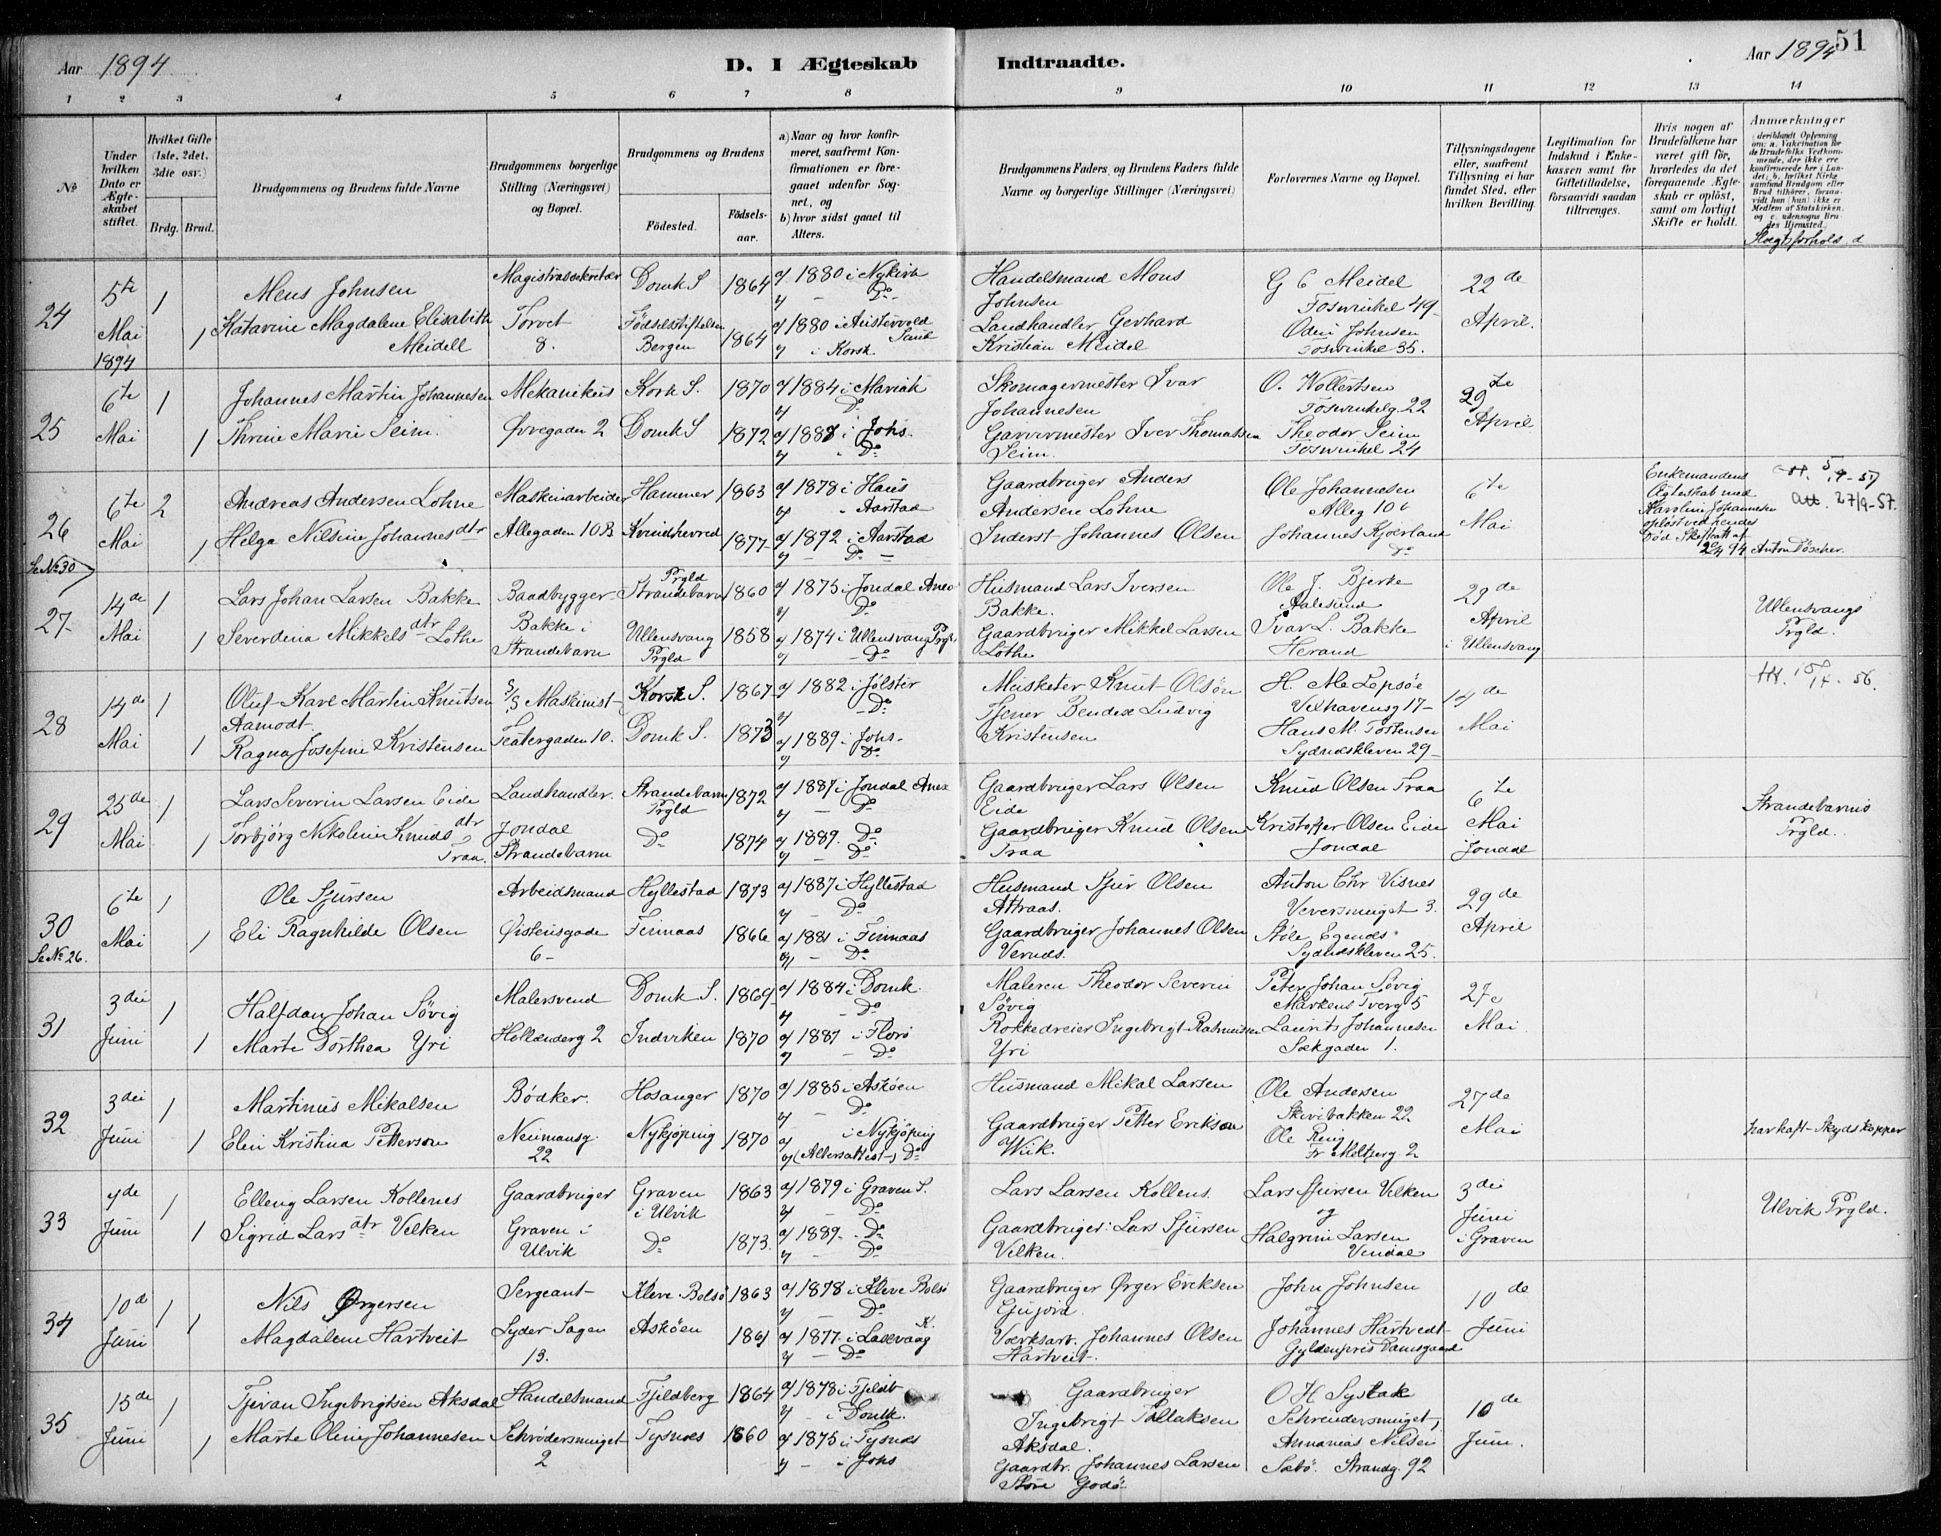 Aar 1894 D. I Ægteskab Indtraadte. Aar 1894 51
1 2 3 4 5 6 7 8 9 10 11 12 13 14
No
Under hvilken Dato er Ægteskabet stiftet.
Hvilket Gifte (1ste, 2det, 3die osv.)
Brdg. Brud.
Brudgommens og Brudens fulde Navne
Brudgommens borgerlige Stilling (Næringsvei) og Bopæl.
Brudgommens og Brudens
Födested. Födselsaar.
a) Naar og hvor konfirmeret, saafremt Konfirmationen er foregaaet udenfor Sognet, og
b) hvor sidst gaaet til Alters.
Brudgommens Faders, og Brudens Faders fulde Navne og borgerlige Stillinger (Næringsvei)
Forlovernes Navne og Bopæl.
Tillysningsdagene eller, saafremt Tillysning ei har fundet Sted, efter hvilken Bevilling.
Legitimation for Indskud i Enkekassen samt for Giftetilladelse, forsaavidt saadan tiltrænges.
Hvis nogen af Brudefolkene har været gift för, hvorledes da det foregaaende Ægteskab er oplöst, samt om lovligt Skifte er holdt.
Anmerkninger (deriblandt Oplysning om: a. Vakcination for de Brudefolks Vedkommende, der ikke ere konfirmerede her i Landet; b. hvilket Kirkesamfund Brudgom eller Brud tilhörer, forsaavidt han (hun) ikke er Medlem af Statskirken, og c. udensogns Brudes Hjemsted.
Slægtsforhold d
24 5te Mai 1894 1 Mens Johnsen Magistratssekretær Domk S 1864 a/ 1880 i Nykirk y — Do Handelsmand Mons Johnsen G C Meidel Foswinkel 49 22de April.
1 Katarine Magdalene Elisabeth Meidell Torvet 8. Födselsstiftelsen Bergen 1864 a/ 1880 i Austevold y i Korsk Landhandler Gerhard Kristian Meidel Odin Johnsen Foswinkel 35.
25 6te Mai 1 Johannes Martin Johannesen Mekanikus Korsk S. 1870 a/ 1884 i Mariak y Do Skomagermester Ivar Johannesen O. Wollertsen Foswinkelg 22 29te April
1 Thrine Marie Seim. Øvregaden 2 Domk S 1872 a/ 1887 i Johs. y i Do Garvermester Iver Thomassen Seim. Theodor Seim Foswinkel 24
26 Se No 30 6te Mai 2 Andreas Andersen Lohne Maskinarbeider Hammer 1863 a/ 1878 i Haus y i Aarstad Gaardbruger Anders Andersen Lohne Ole Johannesen Alleg 10 b 6te Mai Enkemandens Ægteskab med Karoline Johannesen oplöst ved hendes Död Anton Döscher. Att. 27/9-57.
1 Helga Nilsine Johannesdtr Allegaden 10B Kvindherred 1877 a/ 1892 i Aarstad y Do Inderst Johannes Olsen Johannes Kjærland Do
27 14de Mai 1 Lars Johan Larsen Bakke Baadbygger Strandebarn Prgld 1860 a/ 1875 i Jondal Anex y Do Husmand Lars Iversen Bakke. Ole J. Bjerke Aalesund 29de April i Ullensvang Ullensvangs Prgld.
1 Severdina Mikkelsdtr Lothe Bakke i Strandebarn Ullensvang Prgld 1858 a/ 1874 i Ullensvang Prgld y — Do Gaardbruger Mikkel Larsen Lothe Ivar L. Bakke Herand
28 14de Mai 1 Oluf Karl Martin Knutsen Aamodt S/S Maskinist Korsk S. 1867 a/ 1882 i Jölster y — Do Musketer Knut Olsön H. M. Lepsöe 17 14de Mai
1 Ragna Josefine Kristensen Teatergaden 10. Domk S. 1873 a/ 1889 i Johs. y Do Tjener Bendix Ludvig Kristensen Hans M. Tostensen Sydneskleven 29
29 25de Mai 1 Lars Severin Larsen Eide Landhandler. Strandebarn Prgld 1872 a/ 1887 i Jondal Anex y — Do Gaardbruger Lars Olsen Eide Knud Olsen Traa 6te Mai Jondal Strandebarns Prgld.
1 Torbjörg Nikoline Knudsdtr Traa. Jondal Strandebarn Do 1874 a/ 1889. Do y — Do Gaardbruger Knud Olsen Traa Kristoffer Olsen Eide Jondal
30 Se No 26. 6te Mai 1 Ole Sjursen Arbeidsmand Hyllestad 1873 a/ 1887 i Hyllestad y — Do Husmand Sjur Olsen Attraas. Anton Chr Visnes Veversmuget 3. 29de April
1 Eli Ragnhilde Olsen Øistensgade 6 Finnaas 1866 a/ 1881 i Finnaas y — Do Gaardbruger Johannes Olsen Vernds. Ståle Egends Sydneskleven 25.
31 3die Juni 1 Halfdan Johan Sövig Malersvend Domk S. 1869 a/ 1884 i Domk. y — Do Maleren Theodor Severin Sövig Peter Johan Sövig Markens Tverg 5 27de Mai.
1 Marte Dorthea Yri Hollænderg 2 Indviken 1870 a/ 1887 i Florö y — Do Rokkedreier Ingebrigt Rasmussen Yri Laurits Johannesen Sækgaden 1.
32 3die Juni 1 Martinus Mikalsen Bödker. Hosanger 1870 a/ 1885 i Asköen y — Do Husmand Mikal Larsen Ole Andersen Skivebakken 22 27de Mai
1 Elin Kristina Petterson Neumansg. 22 Nykjöping 1870 a/ — i Nykjöping y (Altersattest) Do Gaardbruger Petter Erikson Wiik. Ole Ring Fr Meltzerg 2 har haft Skydskopper
33 4de Juni 1 Elleng Larsen Kollenes Gaardbruger Graven i Ulvik 1863 a/ 1879 i Graven S. y — Do Lars Larsen Kollens. Lars Sjursen Velken og 3die Juni i Graven Ulvik Prgld.
1 Sigrid Larsdtr Velken Graven i Ulvik Do 1873. a/ 1889 — Do y — Do Gaardbruger Lars Sjursen Velken. Halgrim Larsen Vindal
34 10de Juni 1 Nils Ørgersen Sergeant Kleve Bolsö 1863 a/ 1878 i Kleve Bolsö y — Do Gaardbruger Ørger Eriksen Gujord. John Johnsen og 10de Juni
1 Magdalene Hartveit Lyder Sagen 13. Asköen 1861 a/ 1877 i Laxevaag K. y — Do Værksarb. Johannes Olsen Hartveit. Johannes Hartvedt Gyldenpris Damsgaard
35 15de Juni 1 Tjeran Ingebrigtsen Aksdal Handelsmand Fjeldberg 1864 a/ 1878 i Fjeldb y — i Domk. Gaardbruger Ingebrigt Tollaksen Aksdal. O H Systak Schreudersmuget, 10de Juni.
1 Marte Oline Johannesen Schrödersmuget 2 Tysnes 1860 a/ 1875 i Tysnes y — i Johs Gaardbr. Johannes Larsen Store Godö Annanias Nilsen Sæbö. Strandg. 92